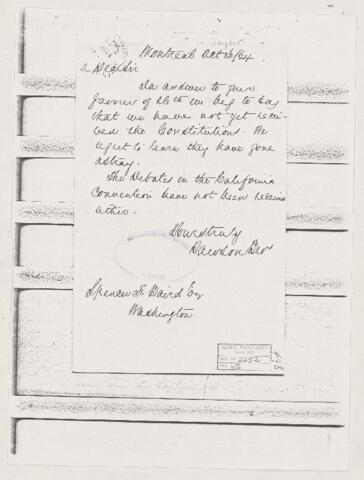 Montreal Oct
Dear Sir
In answer to your
favor of we beg to say
that we have not yet recei-
ved the Constitutions. We
regret to learn they have gone
astray.
The Debates in the California
Convention have not been received
either.
Yours truly
Dawson Bros
Spencer F. Baird Esq
Washington